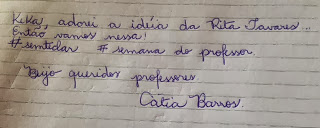 Kika, adorei a idéia da Rita Tavares...
Então vamos nessa!
#semtidar # semana do professor.
Beijo queridos professores.
Cátia Barros.